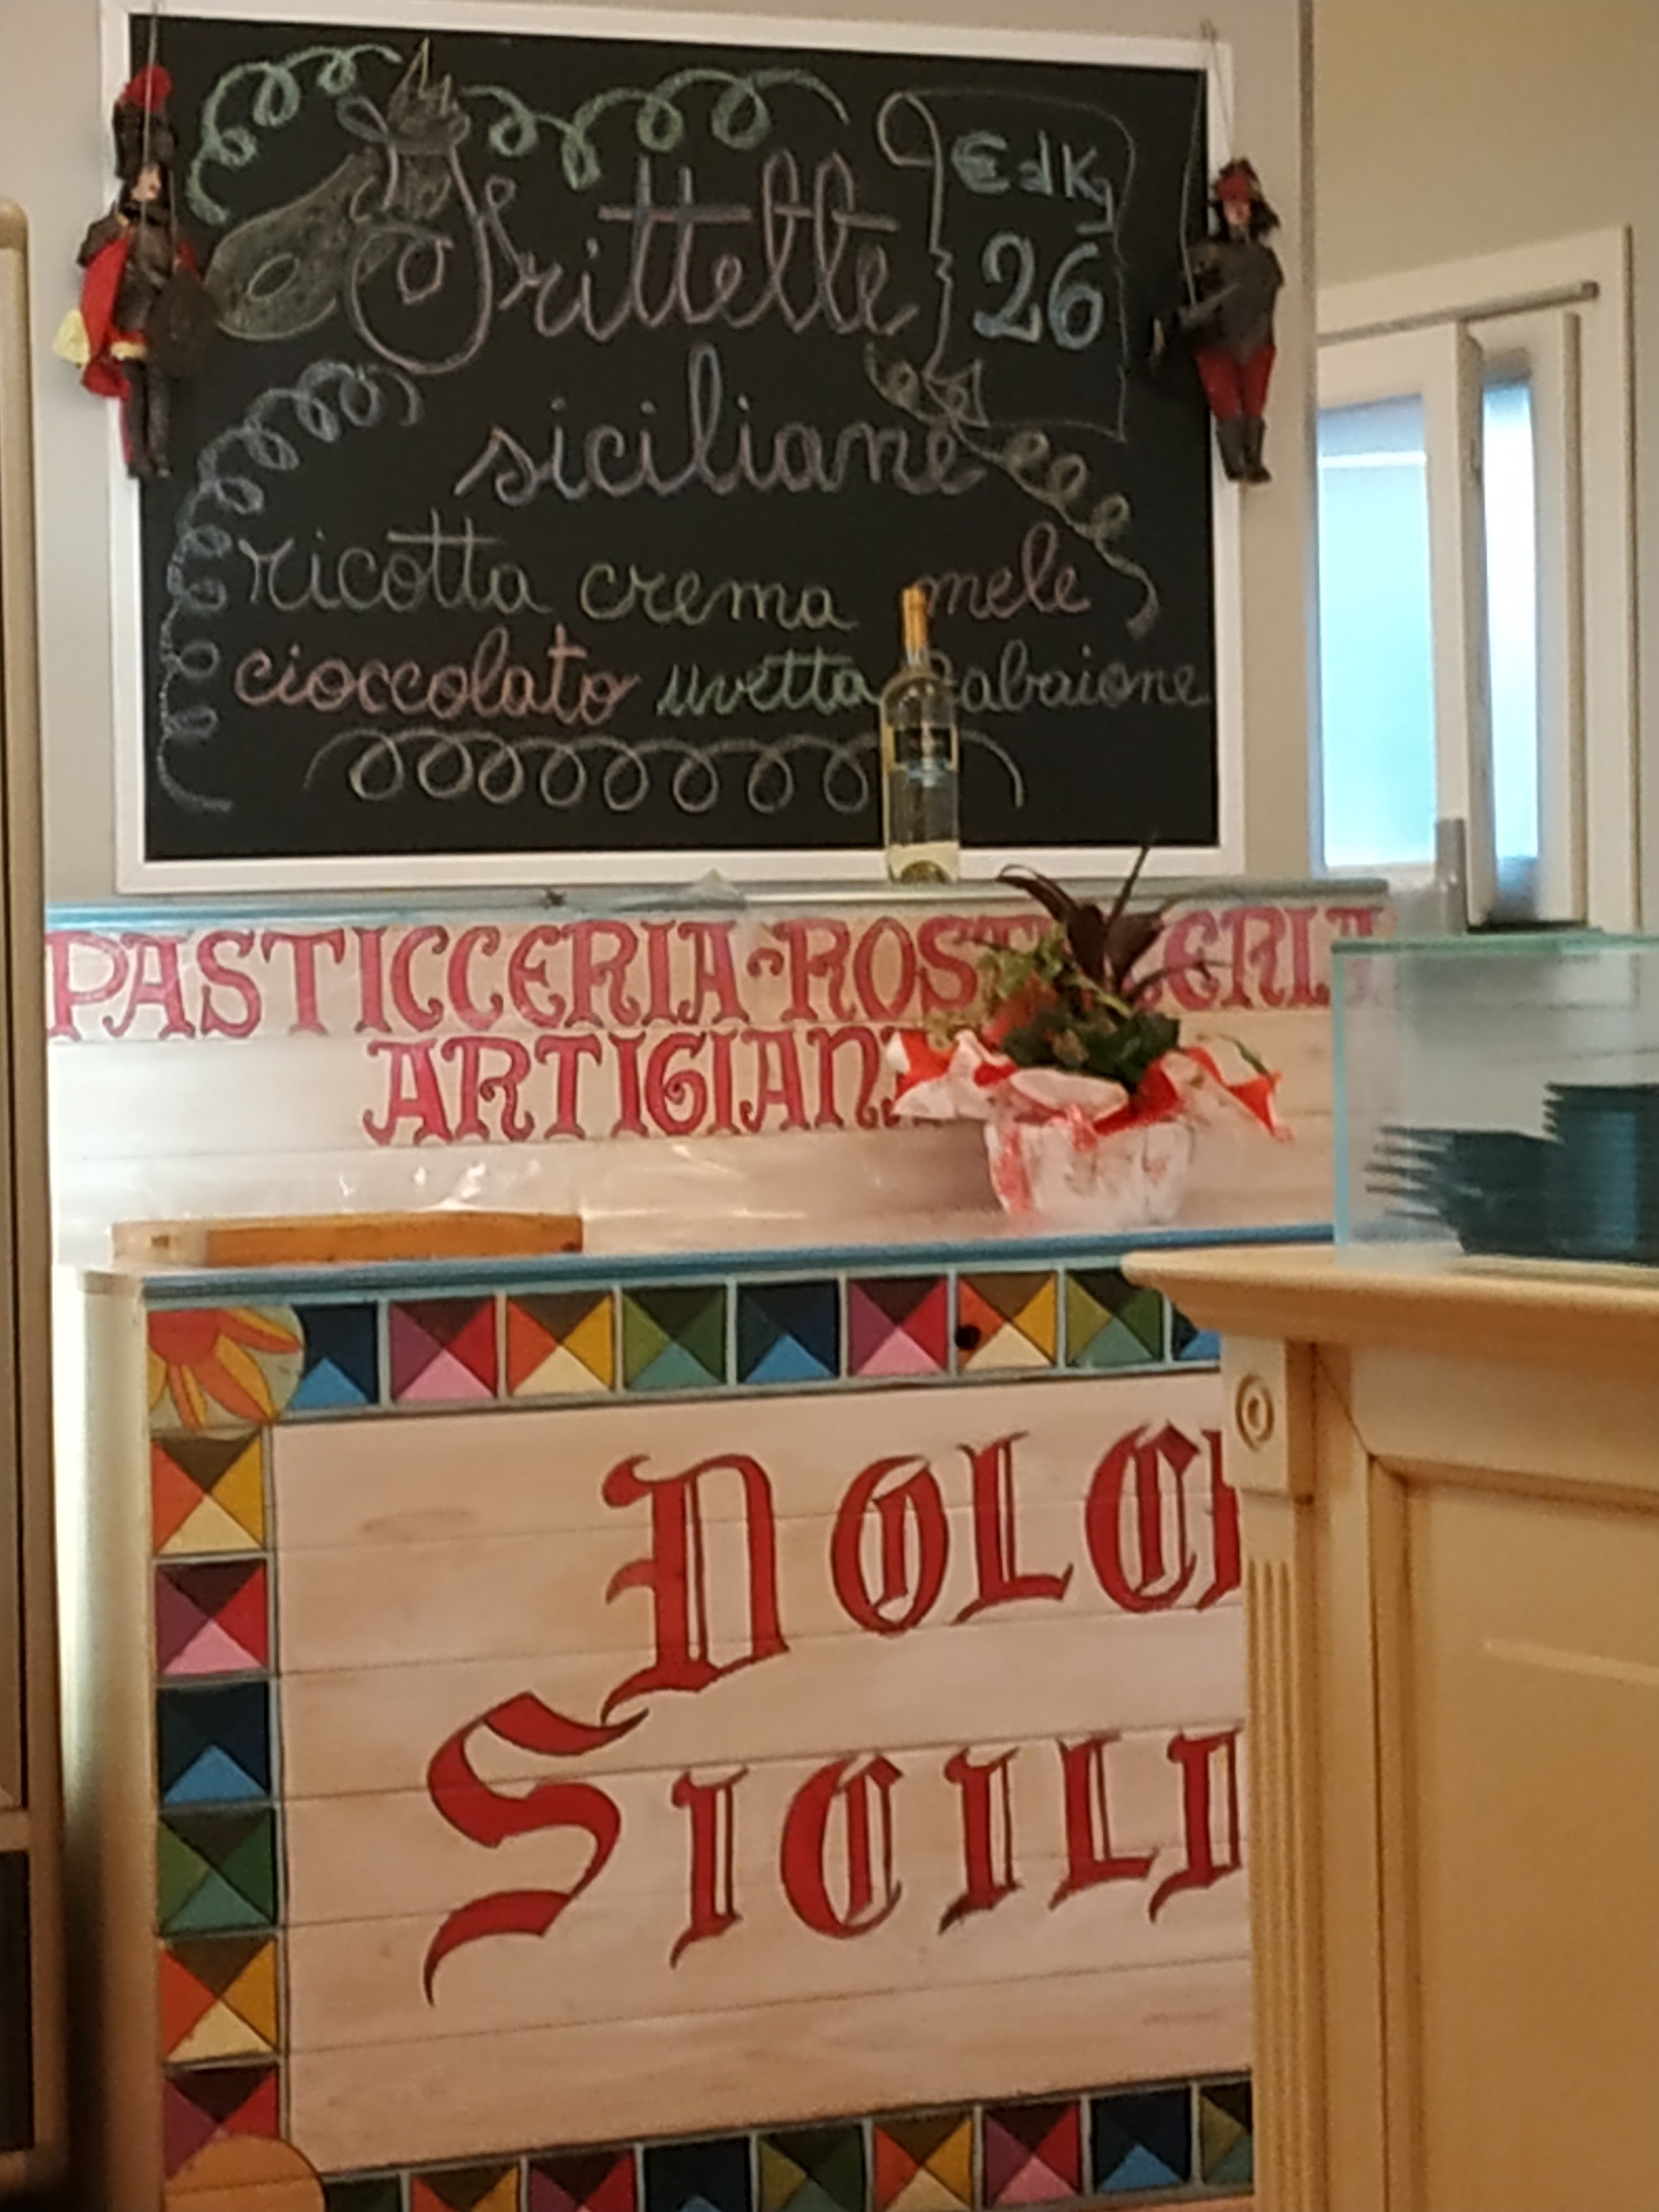 Frittelle
€ al Kg
26
siciliane
ricotta crema mele
cioccolato uvetta zabaione
PASTICCERIA-ROSTICCERIA
ARTIGIAN
DOLCI
SICILI